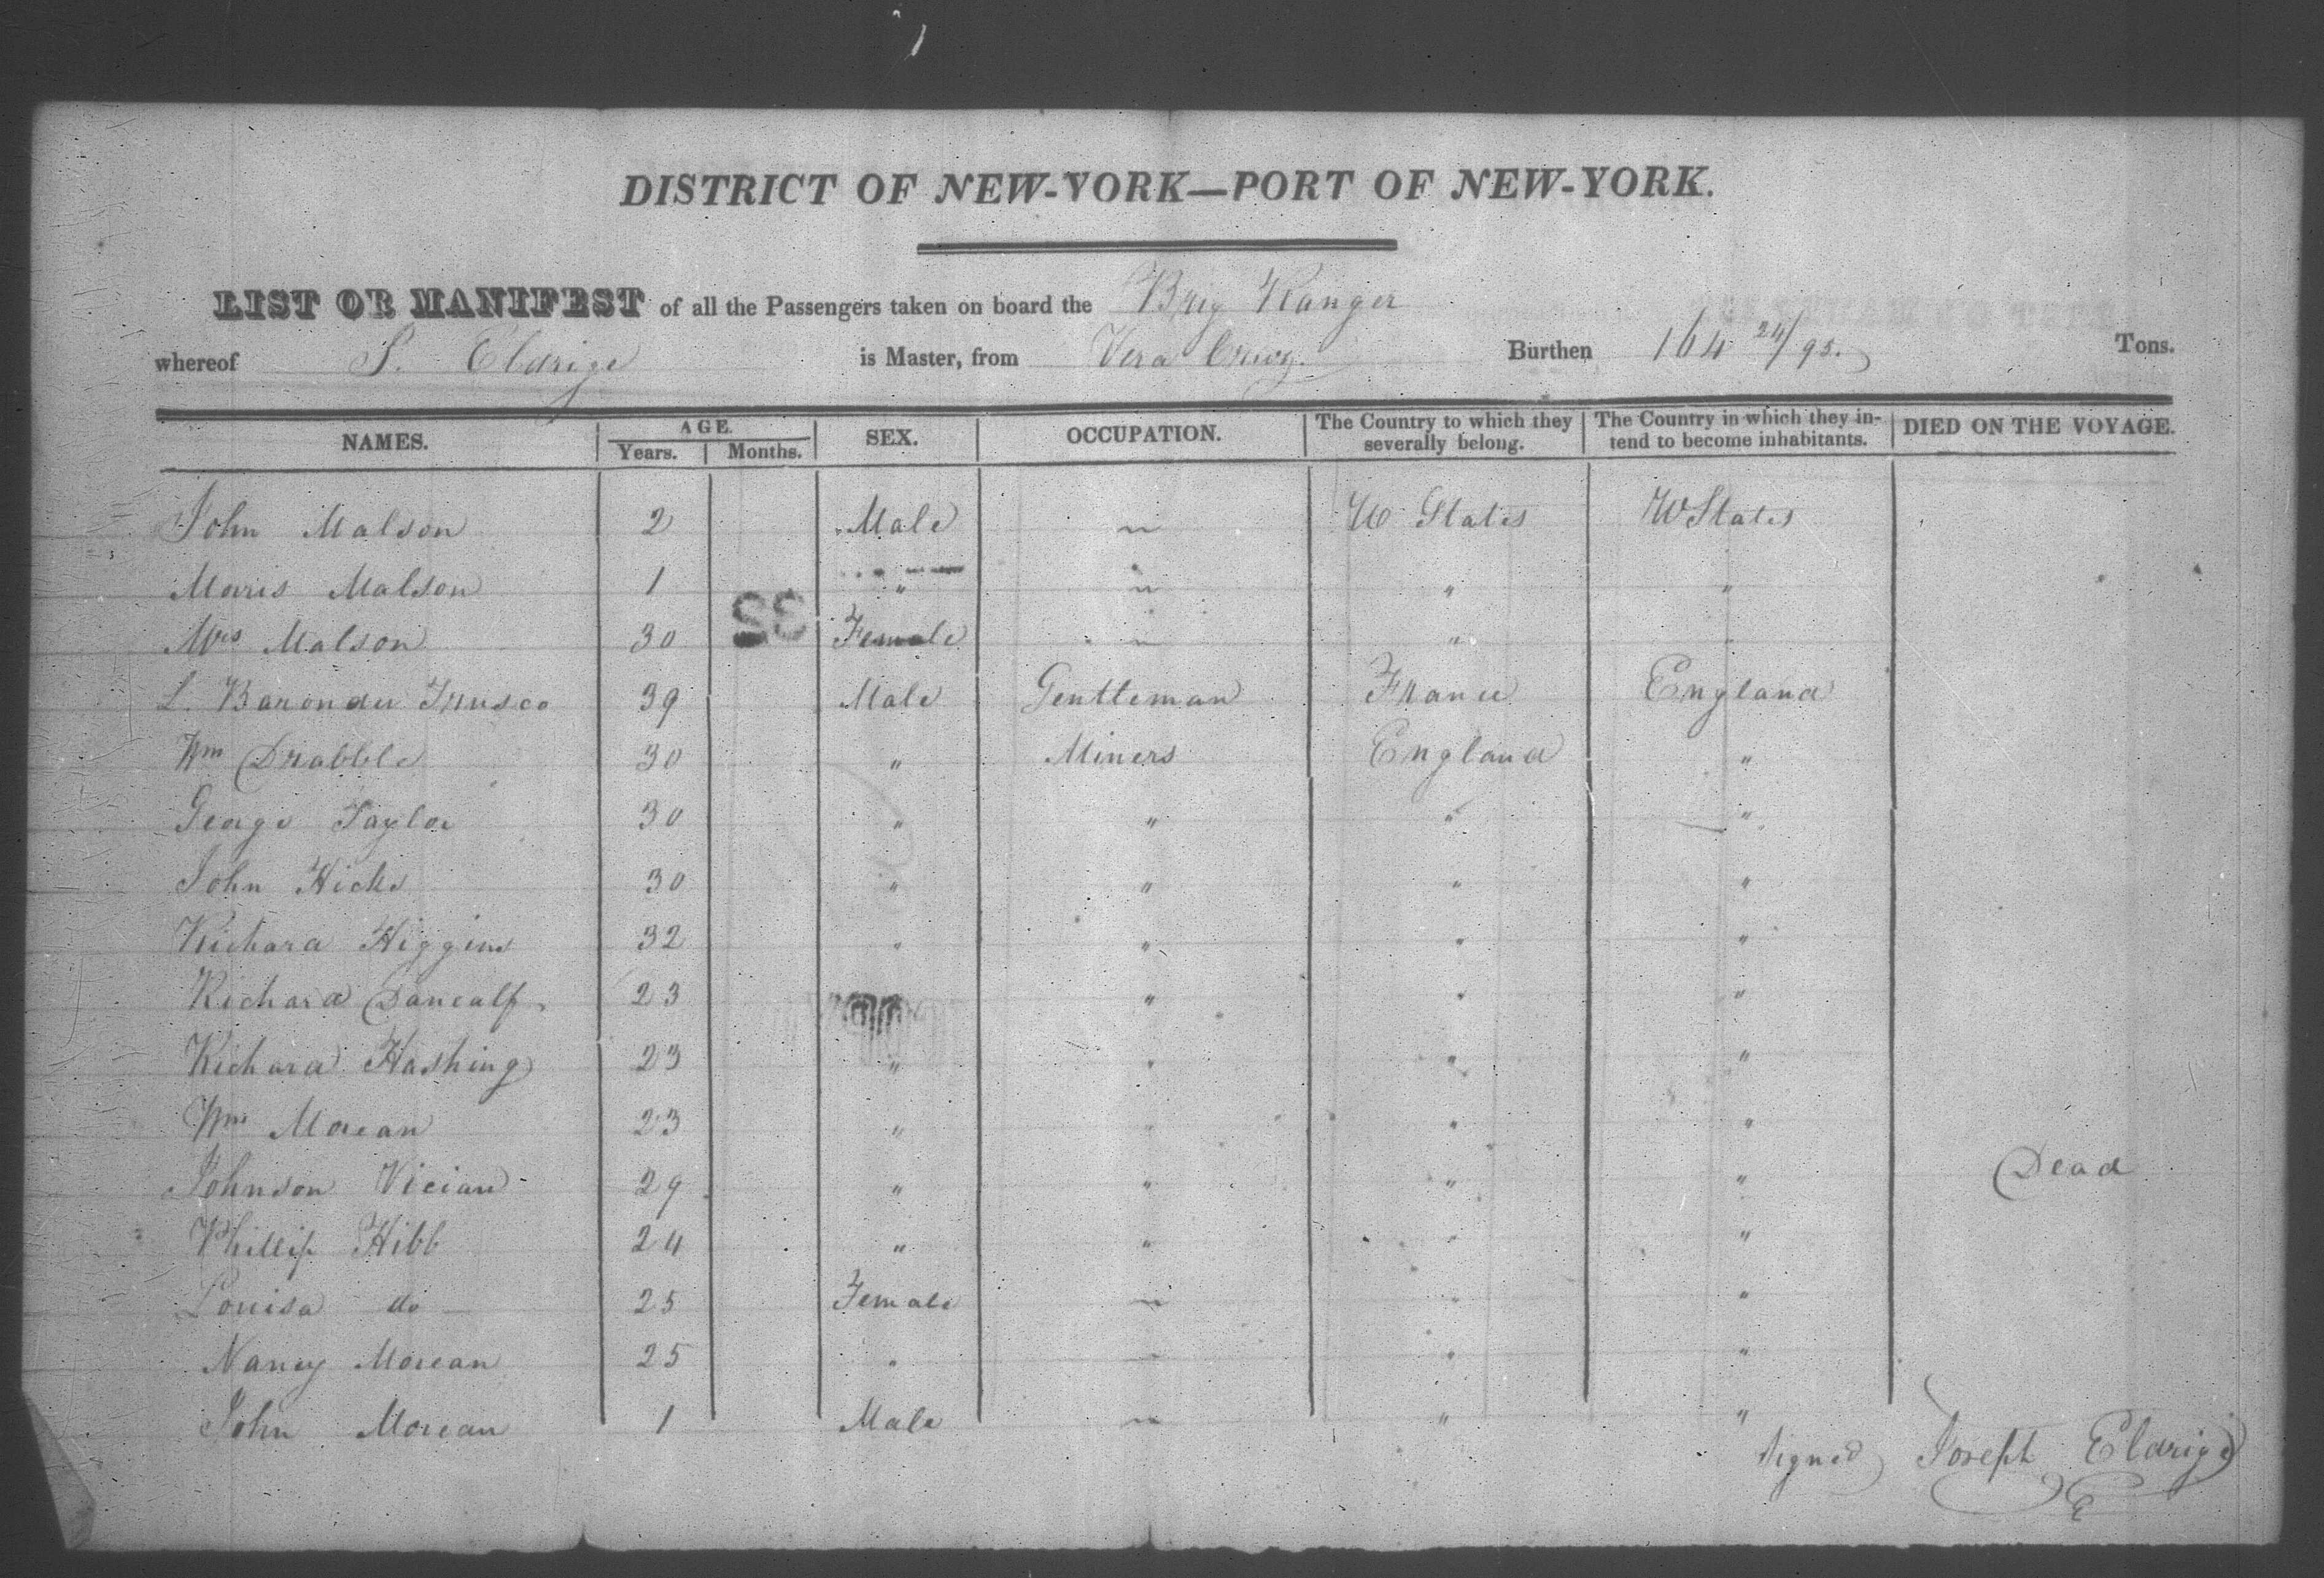 DISTRICT OF NEW-YORK—PORT OF NEW-YORK.
LIST OR MANIFEST of all the Passengers taken on board the Brig Ranger
whereof J. Eldrige is Master, from Vera Cruz. Burthen 164 24/95. Tons.
NAMES. AGE. Years. Months. SEX. OCCUPATION. The Country to which they severally belong. The Country in which they intend to become inhabitants. DIED ON THE VOYAGE.
John Malson 2 Male " U States U States
Moris Malson 1 " " " "
Mrs Malson 30 Female " " "
L. Barondeu Trusco 39 Male Gentleman France England
Wm Drabble 30 " Miners England "
George Taylor 30 " " " "
John Hicks 30 " " " "
Richard Higgins 32 " " " "
Richard Dancalf 23 " " "
Richard Hashing 23 " " " "
Wm Morean 23 " " " "
Johnson Vician 29 " " " " Dead
Phillip Hibb 24 " " " "
Louisa do 25 Female " " "
Nancy Morean 25 " " " "
John Morean 1 Male " " "
Signed Joseph Eldrige